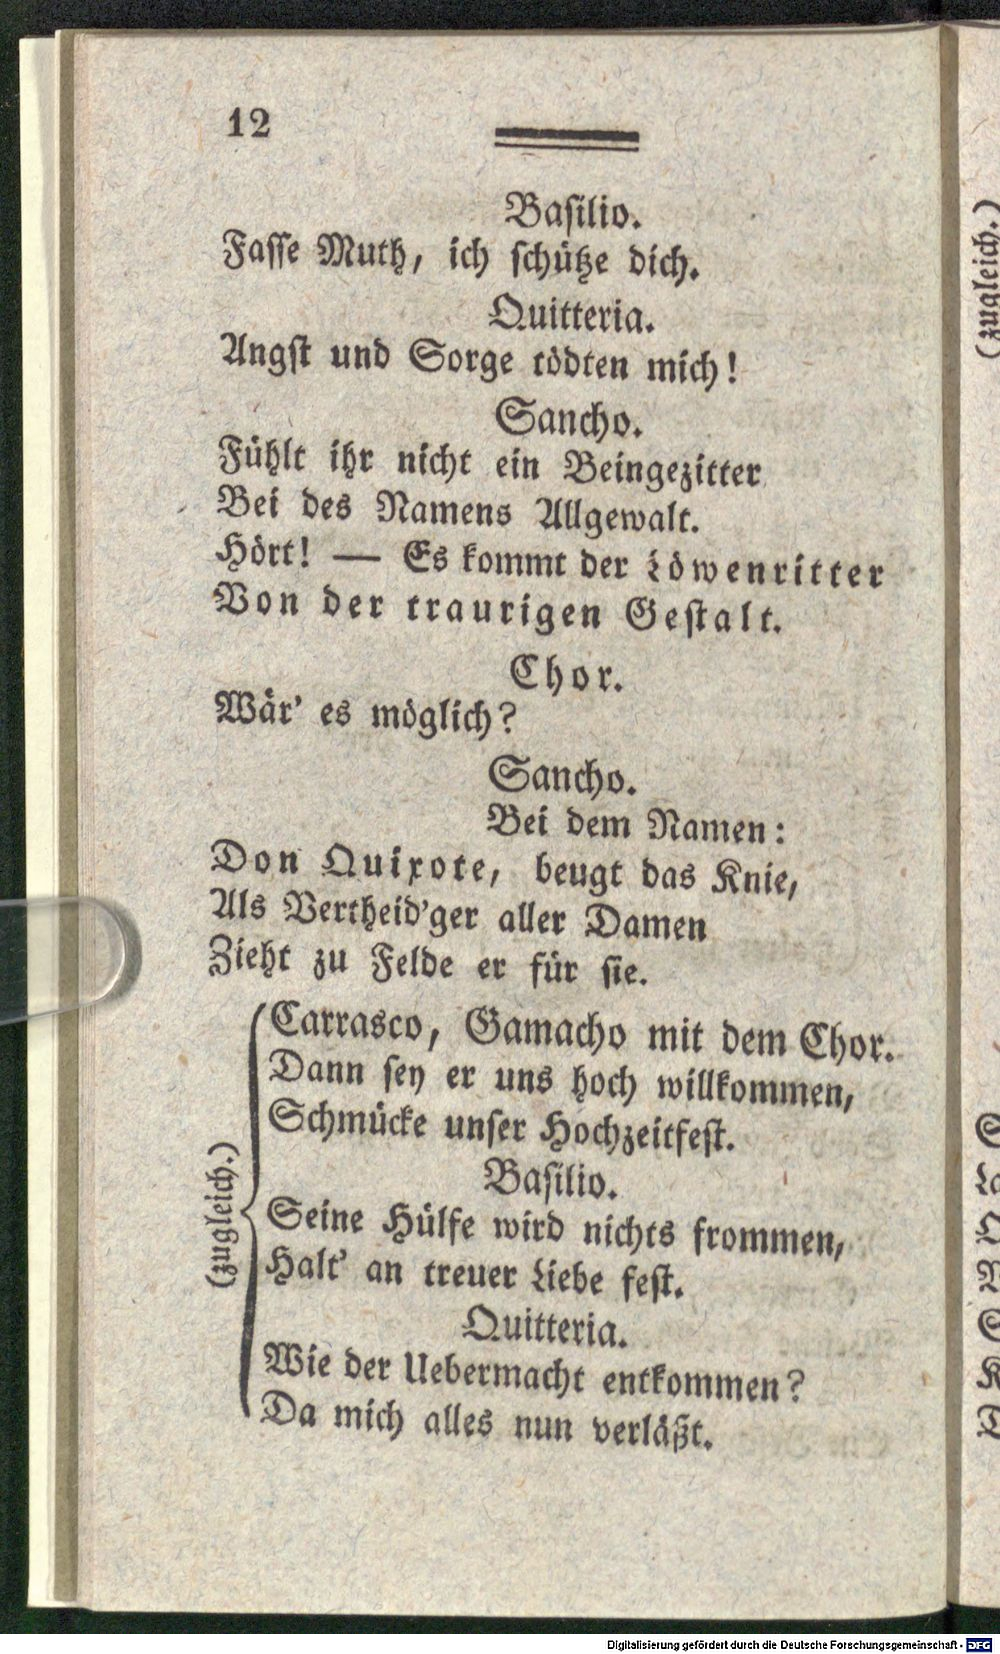 12
Basilio.
Fasse Muth, ich schütze dich.
Quitteria.
Angst und Sorge tödten mich!
Sancho.
Fühlt ihr nicht ein Beingezitter
Bei des Namens Allgewalt.
Hört! — Es kommt der Löwenritter
Von der traurigen Gestalt.
Chor.
Wär' es möglich?
Sancho.
Bei dem Namen:
Don Quixote, beugt das Knie,
Als Vertheid'ger aller Damen
Zieht zu Felde er für sie.
Carrasco, Gamacho mit dem Chor.
Dann sey er uns hoch willkommen,
Schmücke unser Hochzeitfest.
Basilio.
(zugleich.)
Seine Hülfe wird nichts frommen,
Halt' an treuer Liebe fest.
Quitteria.
Wie der Uebermacht entkommen?
Da mich alles nun verläßt.
(zugleich.)
Digitalisierung gefördert durch die Deutsche Forschungsgemeinschaft - DFG